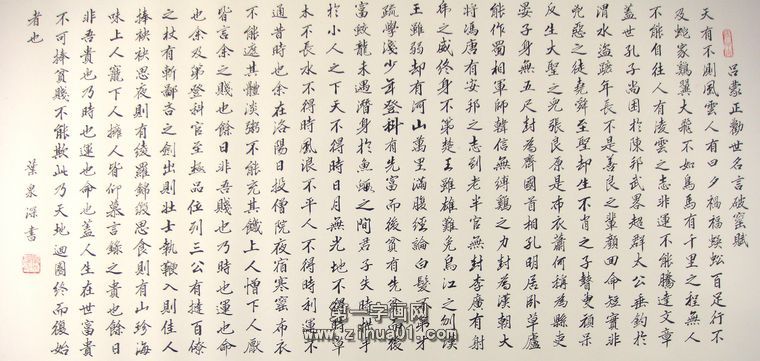 呂蒙正勸世名言破窰賦
天有不測風雲人有旦夕禍福蜈蚣百足行不
及蛇家鷄翼大飛不如鳥馬有千里之程無人
不能自往人有凌雲之志非運不能騰達文章
蓋世孔子尚困於陳邦武畧超群太公垂釣於
渭水盗跖年長不是善良之輩顔回命短實非
兇惡之徒堯舜至聖却生不肖之子瞽叟頑呆
反生大聖之兒張良原是布衣蕭何稱為縣吏
晏子身無五尺封為齊國首相孔明居卧草廬
能作蜀相軍師韓信無縛鷄之力封為漢朝大
將馮唐有安邦之志到老半官無封李廣有射
虎之威終身不第楚王雖雄難免烏江之刎漢
王雖弱却有河山萬里滿腹經綸白髮不第才
疏學淺少年登科有先富而後貧有先貧而後
富蛟龍未遇潛身於魚鰕之間君子失時拱手
於小人之下天不得時日月無光地不得時草
木不長水不得時風浪不平人不得時利運不
通昔時也余在洛陽日投僧院夜宿寒窰布衣
不能遮其體淡粥不能充其飢上人憎下人厭
皆言余之賤也餘日非吾賤也乃時也運也命
也余及第登科官至極品位列三公有撻百僚
之杖有斬鄙吝之劍出則壯士執鞭入則佳人
捧袂袂思夜則有綾羅錦緞思食則有山珍海
味上人寵下人擁人皆仰慕言之貴也餘日
非吾貴也乃時也運也命也蓋人生在世富貴
不可捧貧賤不能欺此乃天地迴圈終而復始
者也
葉泉深書
第一字画网
www.zihua01.com